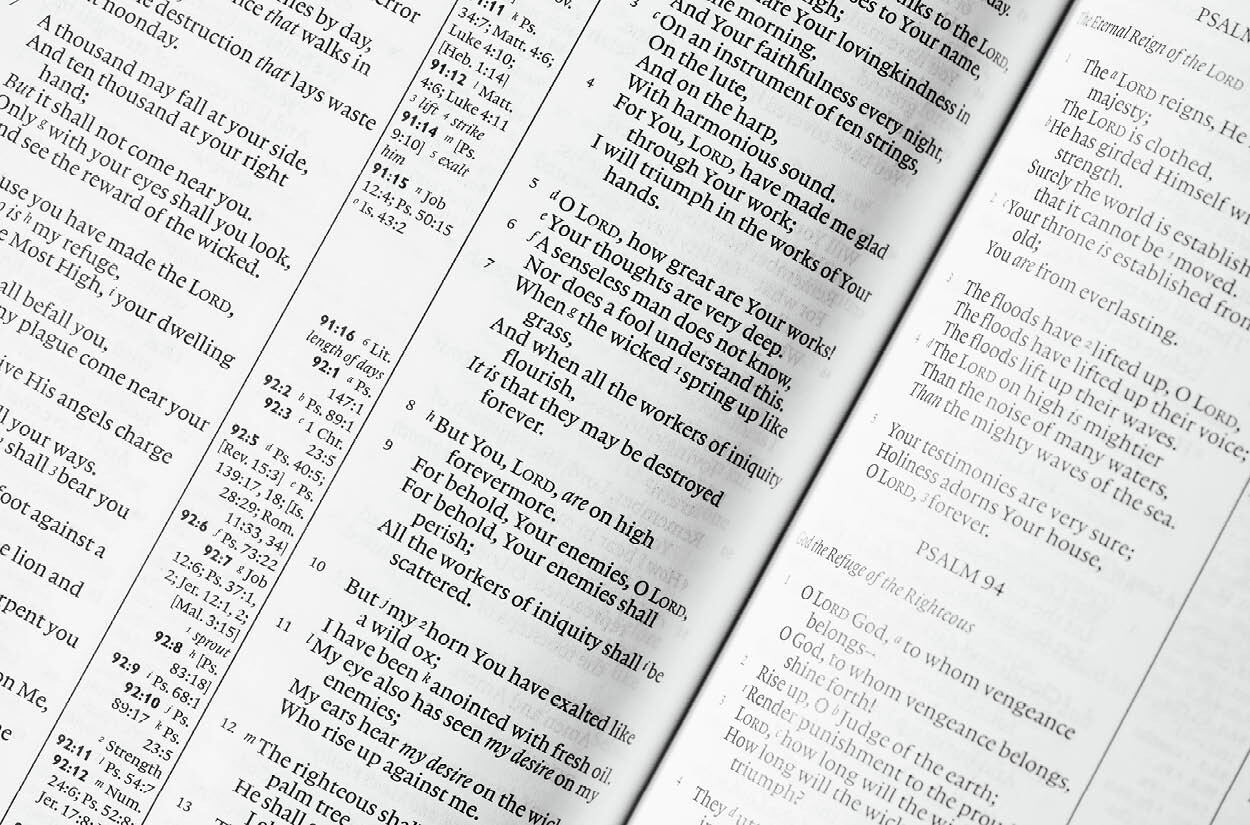 7
error
by day,
that walks in
noonday.
destruction that lays waste
A thousand may fall at your side,
And ten thousand at your right
hand;
But it shall not come near you.
Only g with your eyes shall you look,
see the reward of the wicked.
you have made the LORD,
is h my refuge,
Most High, i your dwelling
befall you,
plague come near your
His angels charge
your ways.
shall 3 bear you
foot against a
lion and
you
on Me,
k Ps.
34:7; Matt. 4:6;
Luke 4:10;
[Heb. 1:14]
91:12 l Matt.
4:6; Luke 4:11
3 lift 4 strike
91:14 m [Ps.
9:10] 5 exalt
him
91:15 n Job
12:4; Ps. 50:15
o Is. 43:2
91:16 6 Lit.
length of days
92:1 a Ps.
147:1
92:2 b Ps. 89:1
92:3 c 1 Chr.
23:5
92:5 d Ps. 40:5;
[Rev. 15:3] e Ps.
139:17, 18; [Is.
28:29; Rom.
11:33, 34]
92:6 f Ps. 73:22
92:7 g Job
12:6; Ps. 37:1,
2; Jer. 12:1, 2;
[Mal. 3:15]
1 sprout
92:8 h [Ps.
83:18]
92:9 i Ps. 68:1
92:10 j Ps.
89:17 k Ps.
23:5
2 Strength
92:11 l Ps. 54:7
92:12 m Num.
24:6; Ps. 52:8;
Jer. 17:8;
day.
thanks to the LORD,
to Your name,
high;
Your lovingkindness in
the morning,
And Your faithfulness every night,
3 c On an instrument of ten strings,
On the lute,
And on the harp,
With harmonious sound.
4 For You, LORD, have made me glad
through Your work;
I will triumph in the works of Your
hands.
5 d O LORD, how great are Your works!
e Your thoughts are very deep.
6 f A senseless man does not know,
Nor does a fool understand this.
7 When g the wicked 1 spring up like
grass,
And when all the workers of iniquity
flourish,
It is that they may be destroyed
forever.
8 h But You, LORD, are on high
forevermore.
9 For behold, Your enemies, O LORD,
For behold, Your enemies shall
perish;
All the workers of iniquity shall i be
scattered.
10 But j my 2 horn You have exalted like
a wild ox;
I have been k anointed with fresh oil.
11 l My eye also has seen my desire on my
enemies;
My ears hear my desire on the
Who rise up against me.
12 m The righteous
palm tree,
He shall
13
The Eternal Reign of the LORD
1 The a LORD reigns, He
majesty;
The LORD is clothed,
b He has girded Himself
strength.
Surely the world is
that it cannot be 1 moved.
2 c Your throne is established from
old;
You are from everlasting.
3 The floods have 2 lifted up, O LORD,
The floods have lifted up their voice;
The floods lift up their waves.
4 d The LORD on high is mightier
Than the noise of many waters,
Than the mighty waves of the sea.
5 Your testimonies are very sure;
Holiness adorns Your house,
O LORD, 3 forever.
PSALM 94
God the Refuge of the Righteous
1 O LORD God, a to whom vengeance
belongs—
O God, to whom vengeance belongs,
shine forth!
2 Rise up, O b Judge of the earth;
Render punishment to the
3 LORD, c how long will the
How long will the
triumph?
4 They d